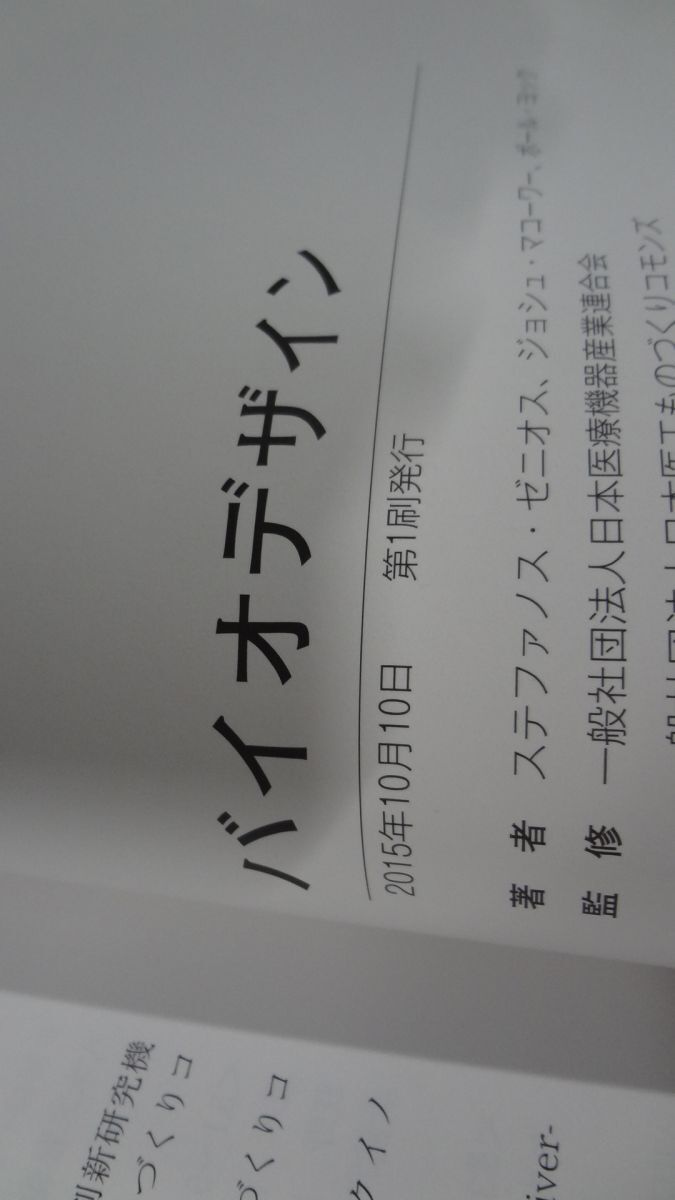 バイオデザイン
2015年10月10日　第1刷発行
著者 ステファノス・ゼニオス、ジョシュ・マコーワー、ポール・ヨック
監修 一般社団法人日本医療機器産業連合会
般社団法人日本医工ものづくりコモンズ
新研究機
づくりコ
づくりコ
クイノ
iver-